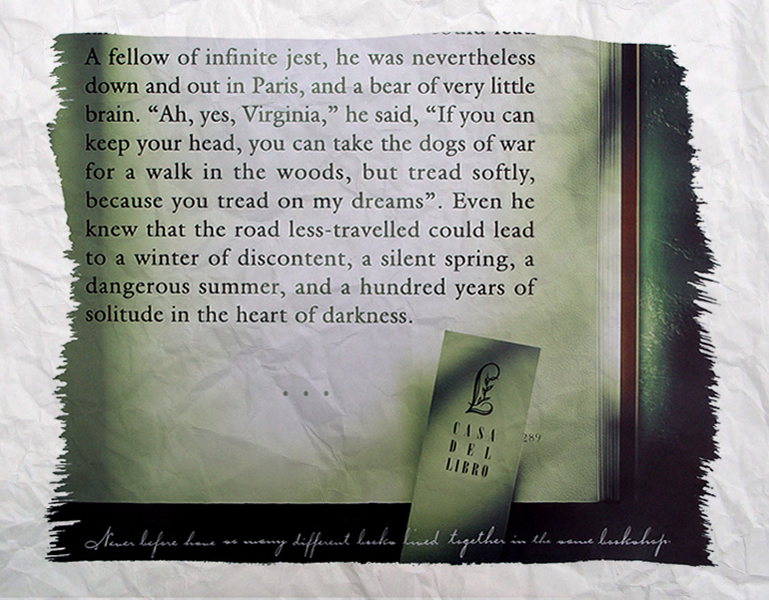 A fellow of infinite jest, he was nevertheless
down and out in Paris, and a bear of very little
brain. “Ah, yes, Virginia,” he said, “If you can
keep your head, you can take the dogs of war
for a walk in the woods, but tread softly,
because you tread on my dreams”. Even he
knew that the road less-travelled could lead
to a winter of discontent, a silent spring, a
dangerous summer, and a hundred years of
solitude in the heart of darkness.
* * *
L
CASA
DEL
LIBRO
289
Never before have so many different books lived together in the same bookshop.